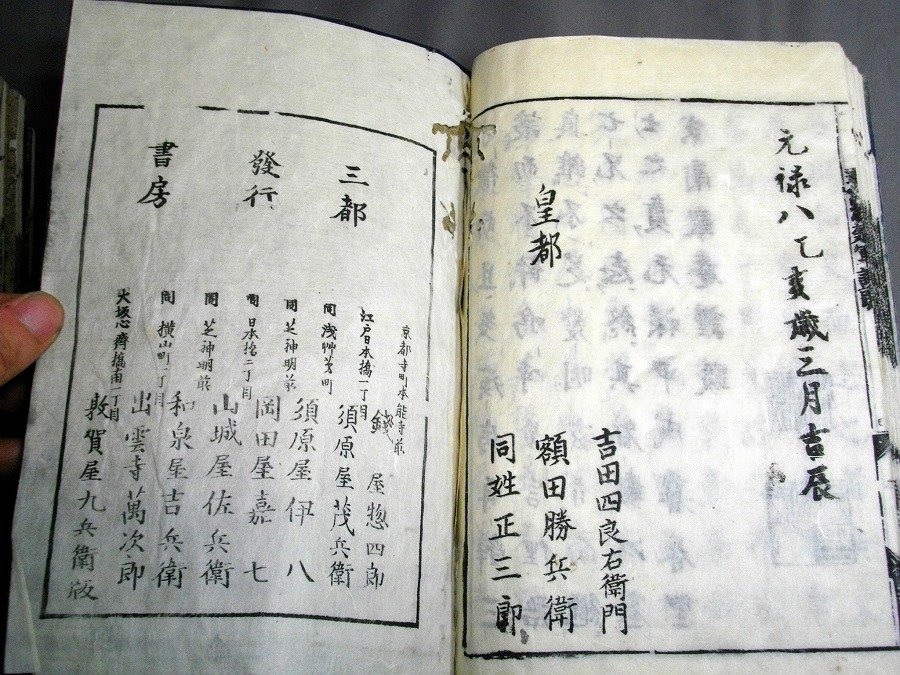 元禄八乙亥歳三月吉辰
皇都
吉田四良右衛門
額田勝兵衛
同姓正三郎
三都
發行
書房
京都寺町本能寺前
錢屋惣四郎
江戸日本橋一丁目
須原屋茂兵衛
同浅艸茅町
須原屋伊八
同芝神明前
岡田屋嘉七
同日本橋二丁目
山城屋佐兵衛
同芝神明前
和泉屋吉兵衛
同横山町一丁目
出雲寺萬次郎
大坂心齋橋南一丁目
敦賀屋九兵衛版